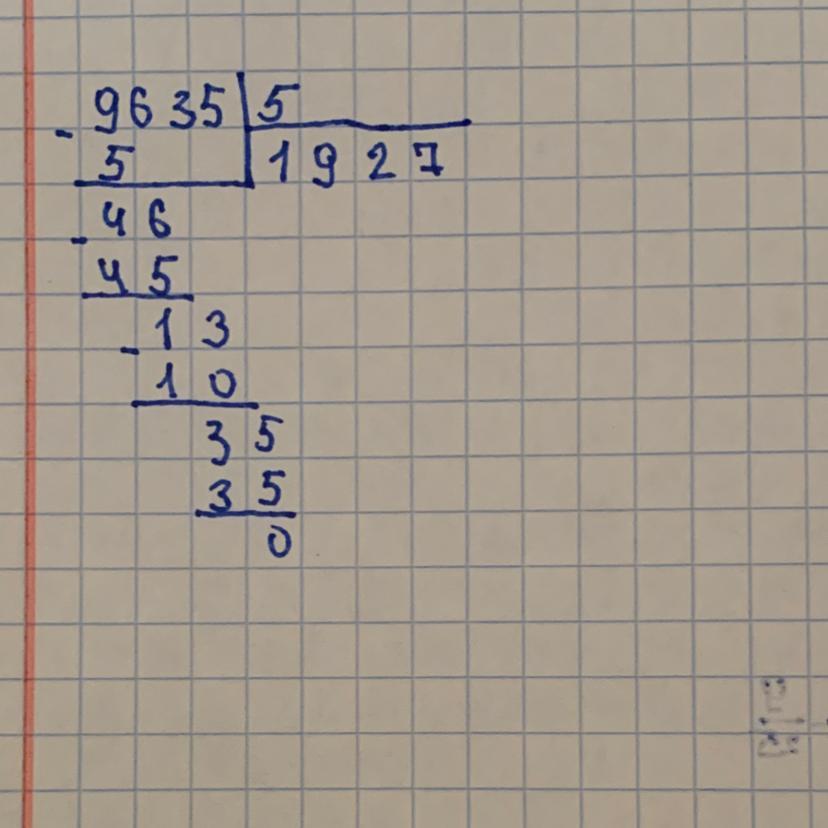 9635 5
- 5 1927
46
- 45
13
- 10
35
35
0